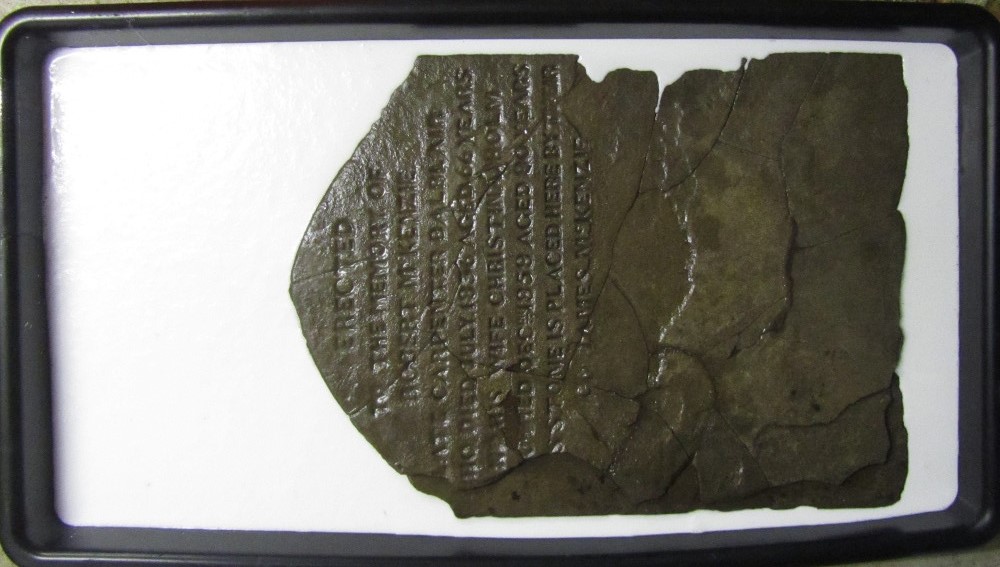 ERECTED
IN THE MEMORY OF
ROBERT McKENZIE
LATE CARPENTER
WHO DIED JULY 1836 AGED 66 YEARS
AND HIS WIFE CHRISTINA
DIED DEC 1859 AGED 80 YEARS
STONE IS PLACED HERE BY THEIR
JAMES McKENZIE